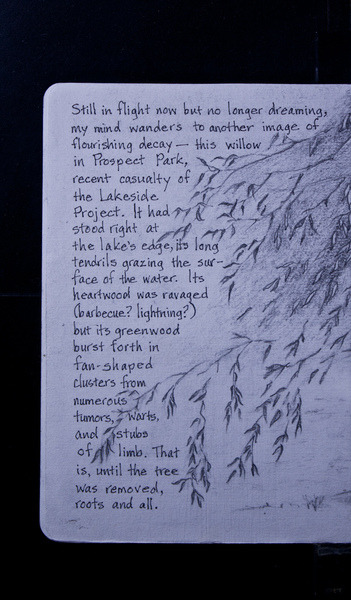 Still in flight now but no longer dreaming,
my mind wanders to another image of
flourishing decay — this willow
in Prospect Park,
recent casualty of
the Lakeside
Project. It had
stood right at
the lake's edge, its long
tendrils grazing the sur-
face of the water. Its
heartwood was ravaged
(barbecue? lightning?)
but its greenwood
burst forth in
fan-shaped
clusters from
numerous
tumors, warts,
and stubs
of limb. That
is, until the tree
was removed,
roots and all.